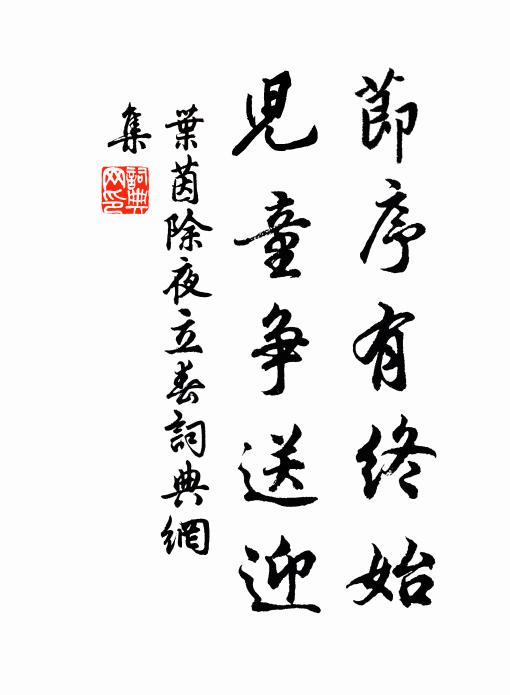 節序有終始
兒童争送迎
葉茵除夜立春詞典網
集
詞典網印